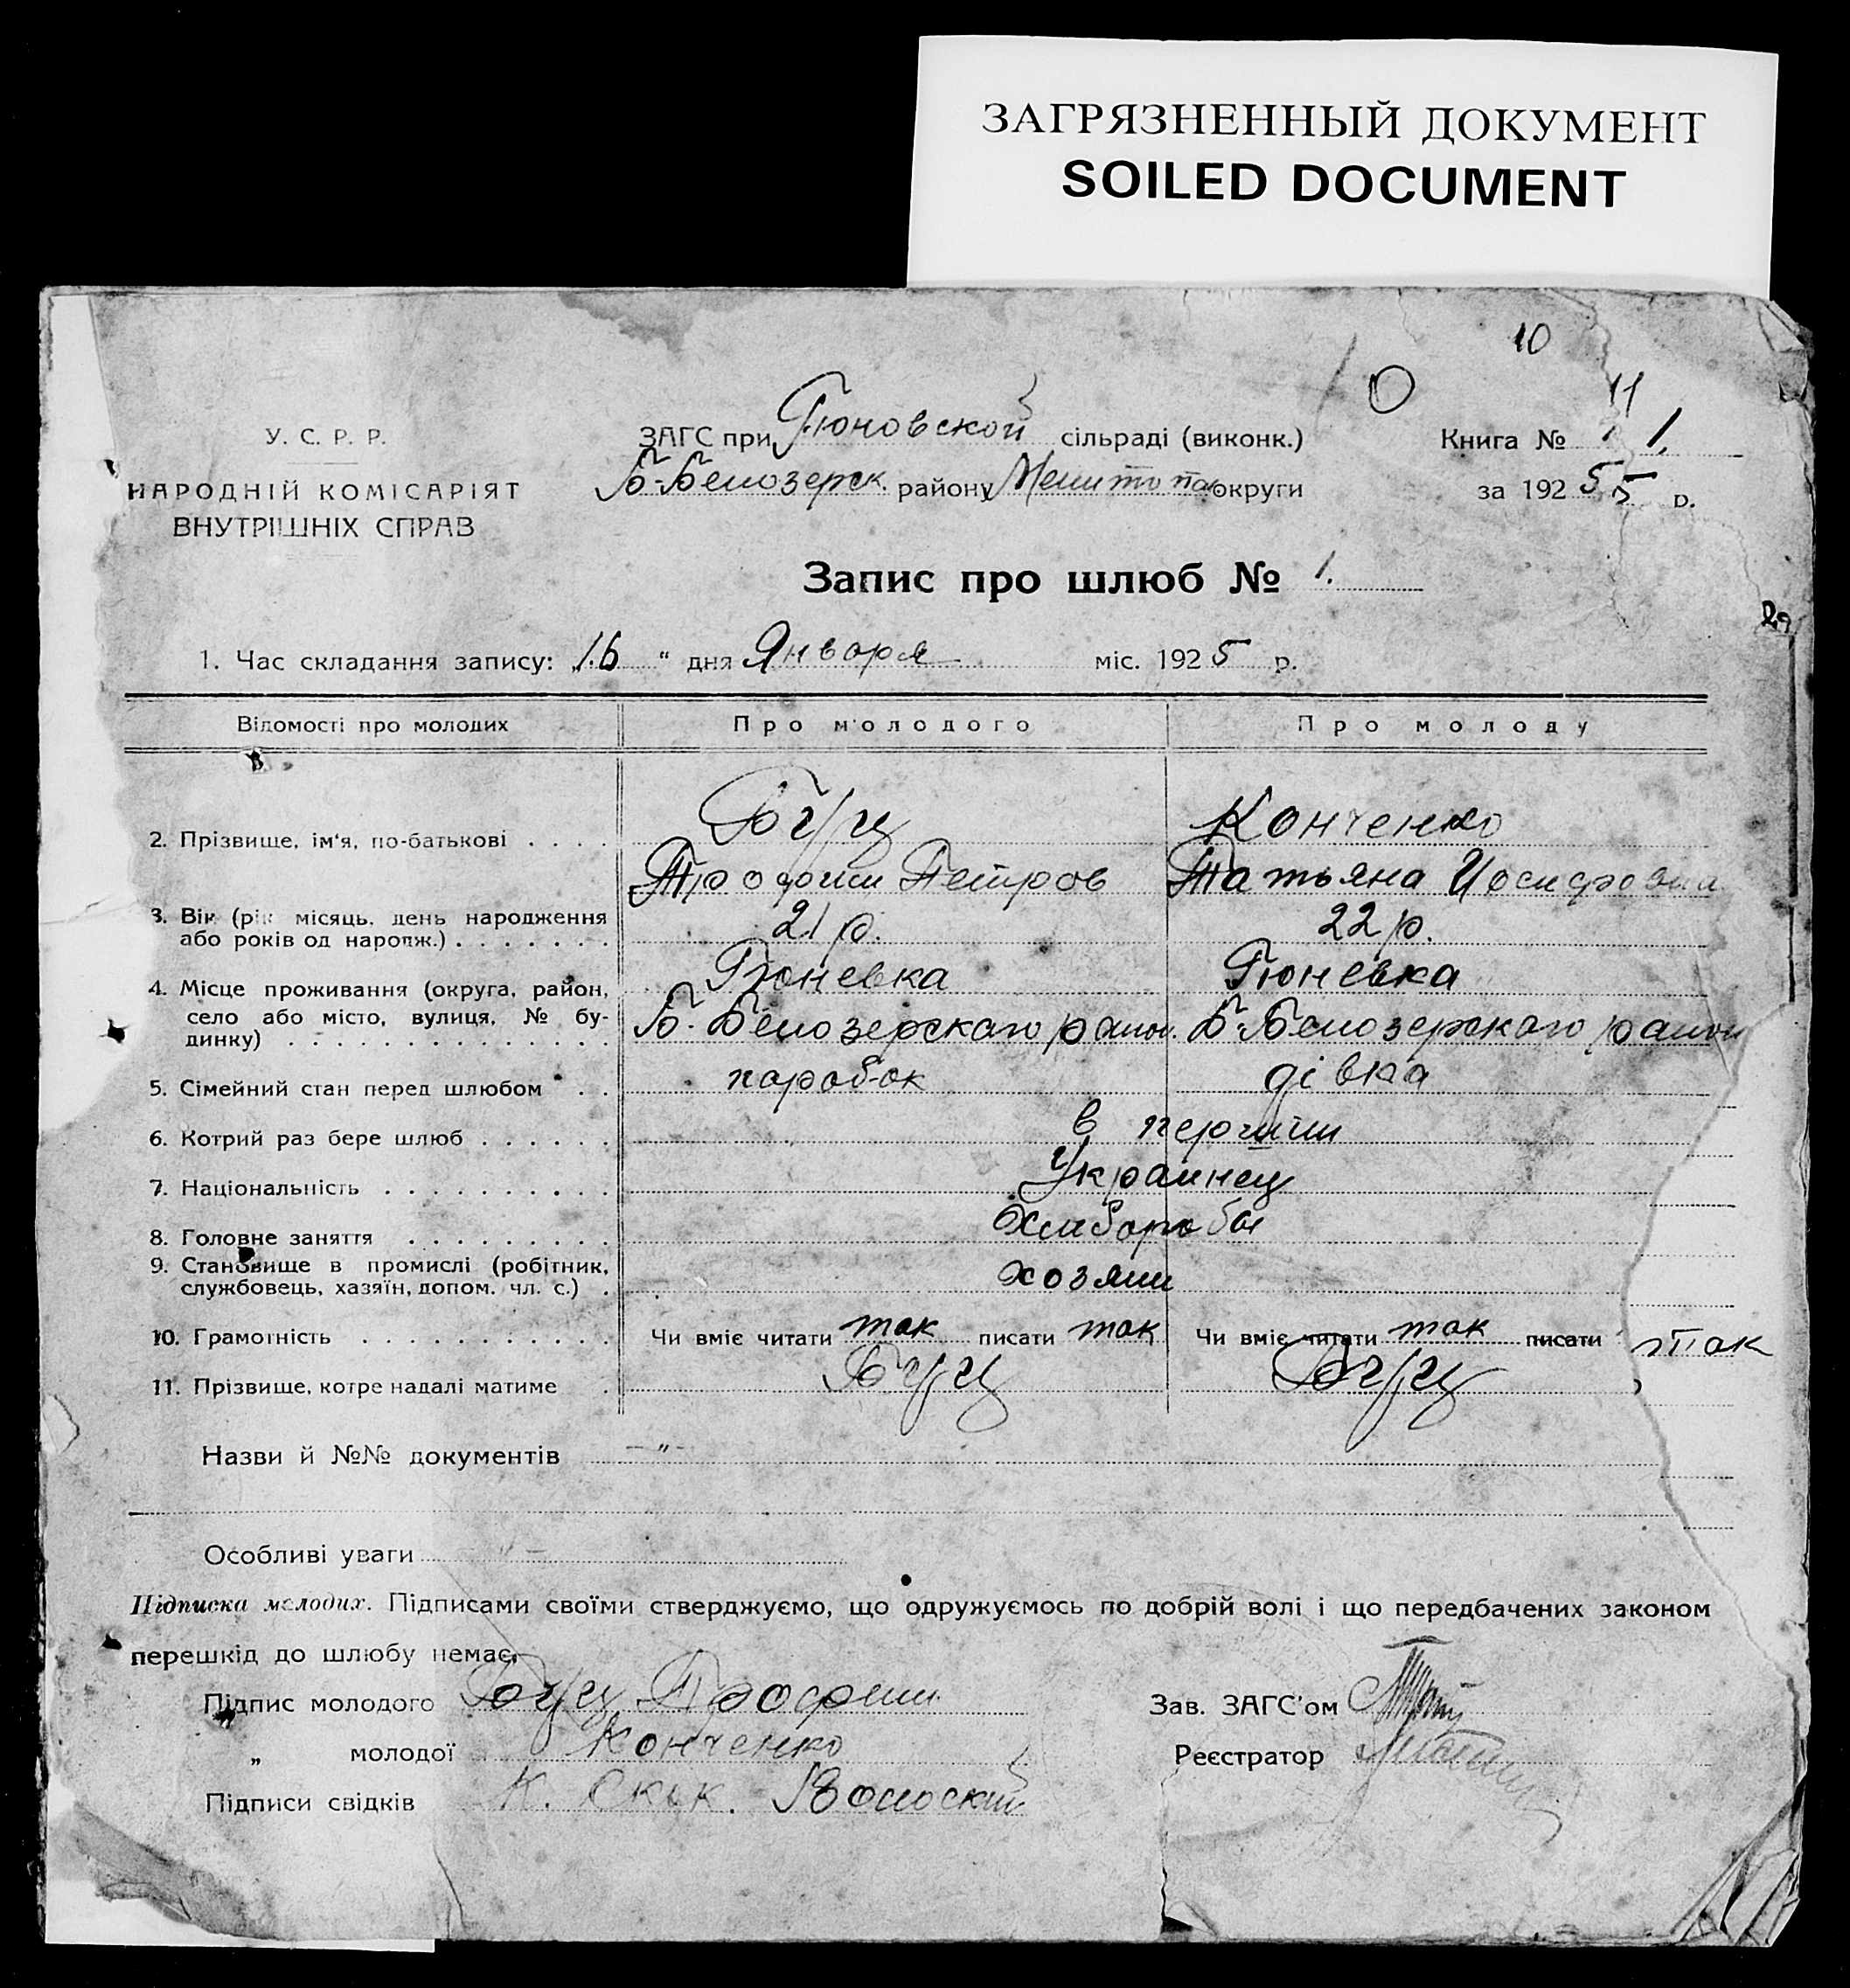 ЗАГРЯЗНЕННЫЙ ДОКУМЕНТ
SOILED DOCUMENT
10
10
11
У. С. Р. Р.
НАРОДНІЙ КОМІСАРІЯТ
ВНУТРІШНІХ СПРАВ
ЗАГС при Гюновской сільраді (виконк.)
Б-Белозерск. району Мелитоп округи
Книга № 1.
за 1925 р.
Запис про шлюб № 1.
1. Час складання запису: „16 " дня Января міс. 1925 р.
Відомості про молодих
Про молодого
Про молоду
2. Прізвище, ім'я, по-батькові . . . .
Трофим Петров
Конченко
Татьяна Иосифовна
3. Вік (рік місяць, день народження
або років од народж.) . . . . . . .
21 р.
22 р.
4. Місце проживання (округа, район,
село або місто, вулиця, № бу-
динку) . . . . . . . . . . . . .
Гюневка
Б. Белозерскаго район.
Гюневка
Б. Белозерскаго район
5. Сімейний стан перед шлюбом . .
паробок
дівка
6. Котрий раз бере шлюб . . . . . .
в перший
7. Національність . . . . . . . . . .
Украинец
8. Головне заняття . . . . . . . . .
Хлибороби
9. Становище в промислі (робітник,
службовець, хазяїн, допом. чл. с.) .
хозяин
10. Грамотність . . . . . . . . . . .
Чи вміє читати так писати так
Чи вміє читати так писати так
11. Прізвище, котре надалі матиме .
Назви й №№ документів — " —
Особливі уваги " —
Підписка молодих. Підписами своїми стверджуємо, що одружуємось по добрій волі і що передбачених законом
перешкід до шлюбу немає.
Підпис молодого Трофим
„ молодої Конченко
Підписи свідків К.
Зав. ЗАГС'ом
Реєстратор